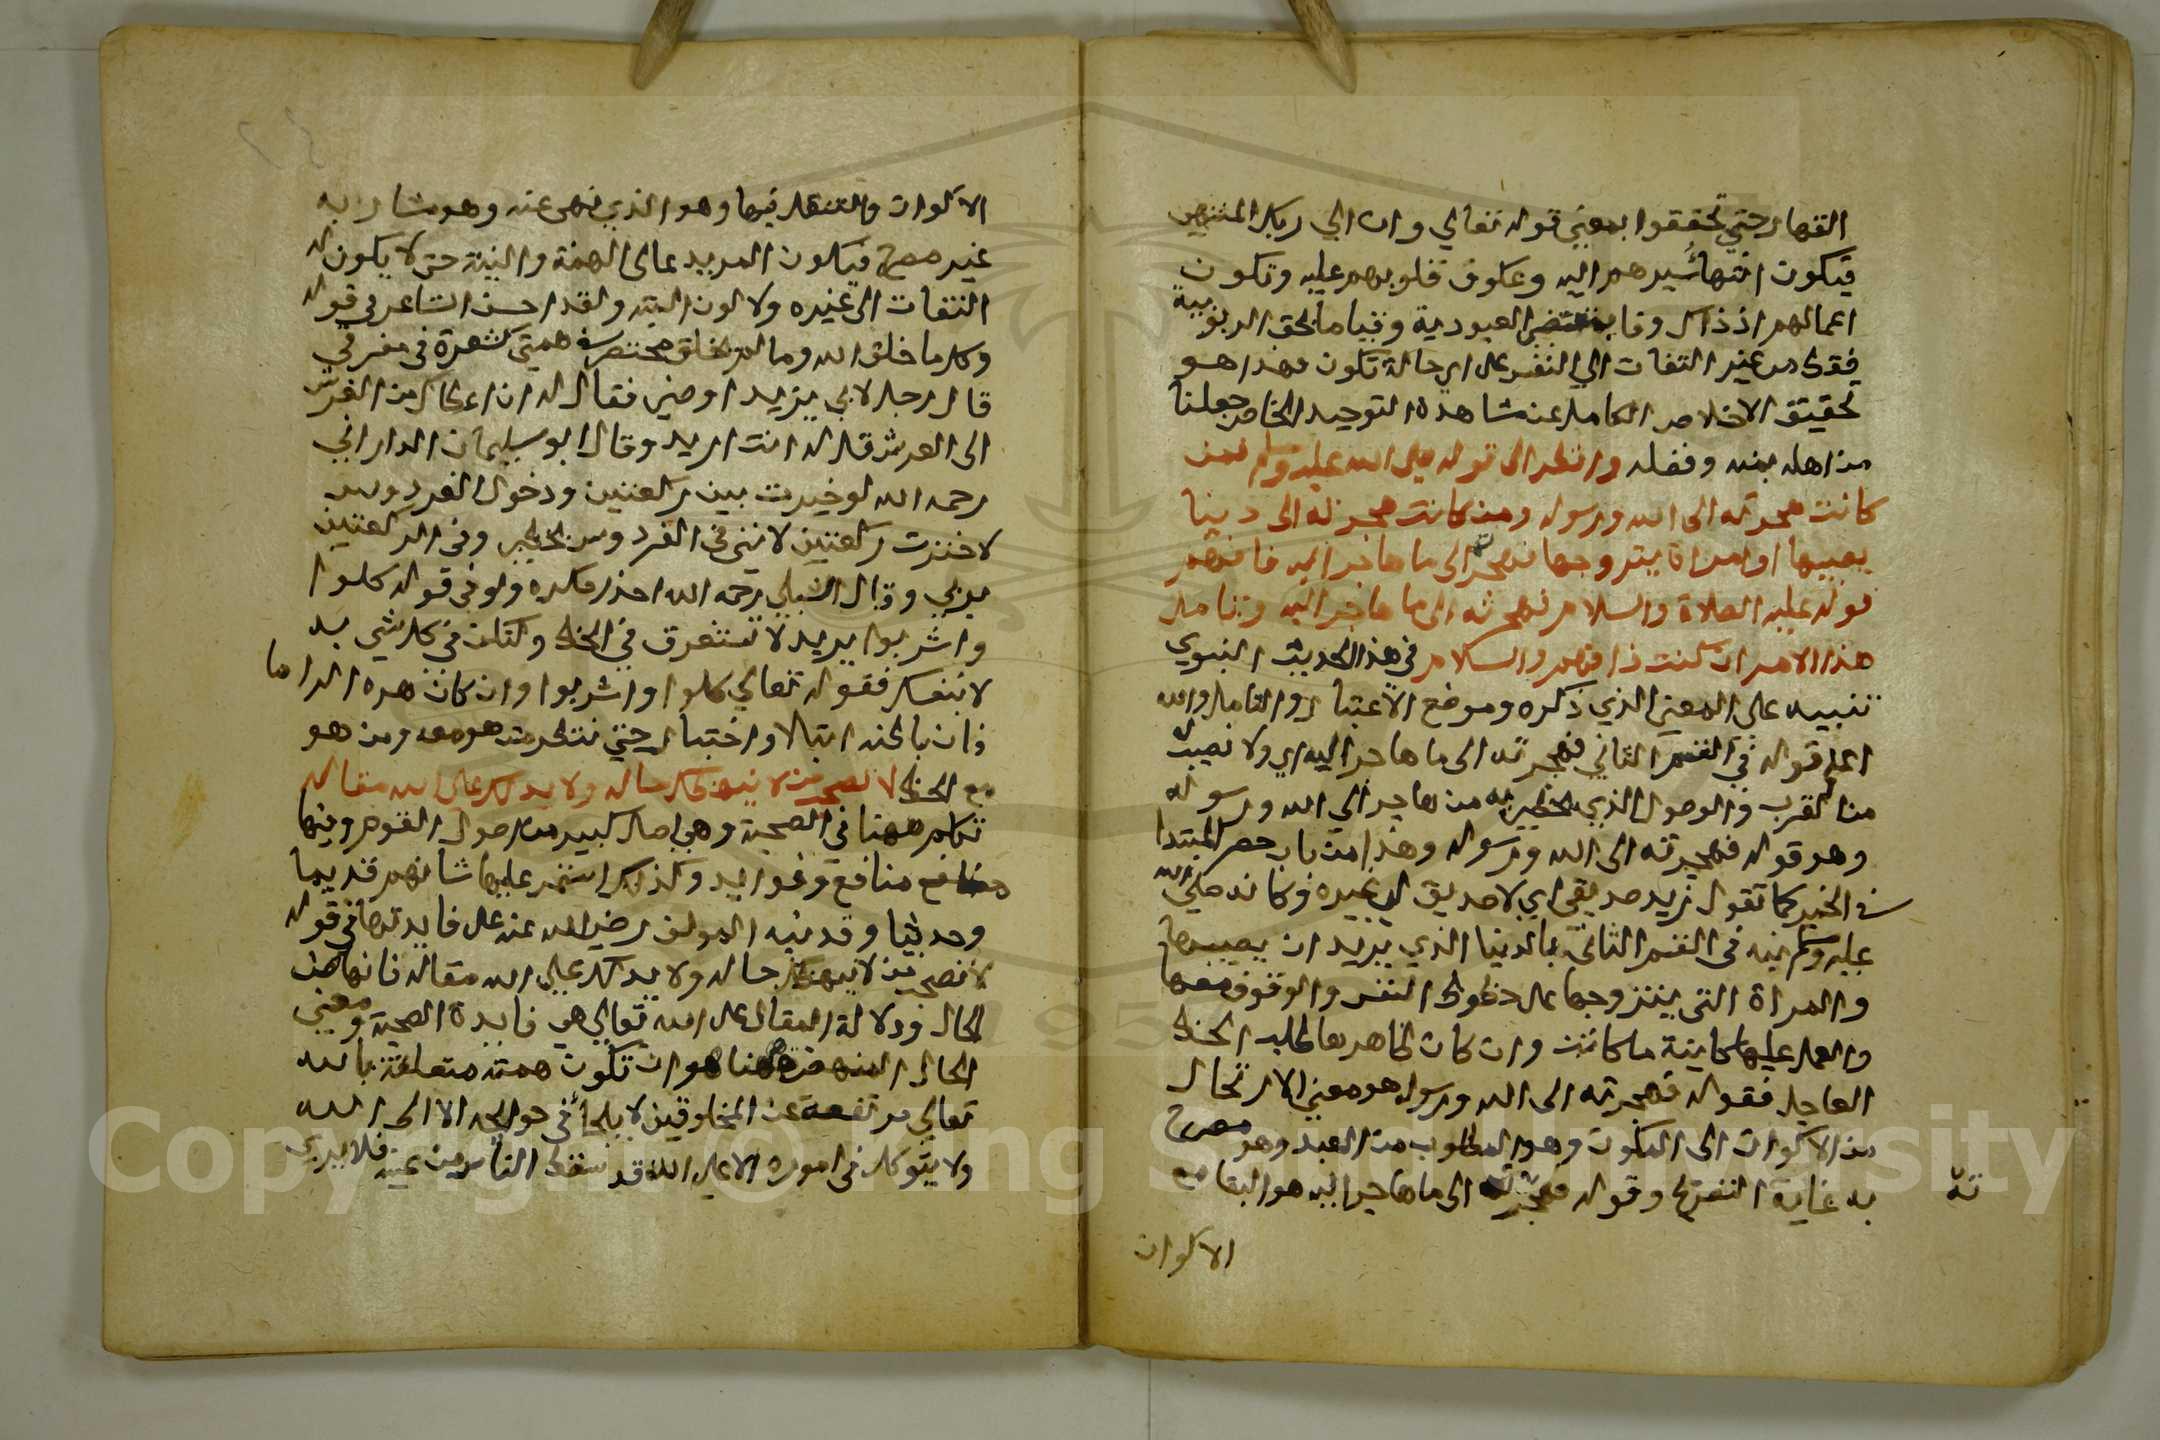 القهار حتي تحققوا بمعني قوله تعالي وان الي ربك المنتهي
فيكون انتهاسيرهم اليه وعكوف قلوبهم عليه وتكون
اعمالهم اذ ذاك وفا بمقتضي العبودية وقياما بحق الربوبية
فقط من غير التفات الي النفس على اي حالة تكون فهذا هو
تحقيق الاخلاص الكامل عن مشاهدة التوحيد الخاص جعلنا
من اهله بمنه وفضله وانظر الى قوله صلى الله عليه وسلم فمن
كانت هجرته الى الله ورسوله ومن كانت هجرته الى دنيا
يصيبها او امراة يتزوجها فهجرته الى ما هاجر اليه فافهم
قوله عليه الصلاة والسلام فهجرته الى ما هاجر اليه وتامل
هذا الامر ان كنت ذا فهم والسلام في هذا الحديث النبوي
تنبيه على المعنى الذي ذكره وموضع الاعتبار والتامل والله
اعلم قوله في القسم الثاني فهجرته الى ما هاجر اليه اي ولا نصيب له
من القرب والوصول الذي خص به من هاجر الي الله ورسوله
وهو قوله فهجرته الى الله ورسوله وهذا من باب حصر المبتدا
في الخبر كما تقول زيد صديقي اي لا صديق لي غيره وكانه صلي الله
عليه وسلم نبه في القسم الثاني بالدنيا الذي يريد ان يصيبها
والمراة التي يتزوجها على حظوظ النفس والوقوف معها
والعمل عليها كاينة ما كانت وان كان ظاهرها طلب الحظ
العاجل فقوله فهجرته الى الله ورسوله هو معنى الارتحال
من الاكوان الى المكون وهو المطلوب من العبد وهو مصرح
به غاية التصريح وقوله فهجرته الى ما هاجر اليه هو البقا مع
ته
الاكوان
الاكوان والتنقل فيها وهو الذي نهى عنه وهو مشار به
غير مصرح فيكون المريد عالى الهمة والنية حتى لا يكون له
التفات الى غيره ولا لون البته ولقد احسن الشاعر في قوله
وكل ما خلق الله وما لم يخلق محتقر في همتي كشعرة في مفرقي
قال رجل لابي يزيد اوصني فقال له ان اعطاك من الفرش
الى العرش قل له انت اريد وقال ابو سليمان الداراني
رحمه الله لو خيرت بين ركعتين ودخول الفردوس
لاخترت ركعتين لانني في الفردوس بحظي وفي الركعتين
بربي وقال الشبلي رحمه الله احذر مكره ولو في قوله كلوا
واشربوا يريد لا تستغرق في الحظ ولتكن في كل شي به
لا بنفسك فقوله تعالي كلوا واشربوا وان كان ظاهره اكراما
فان باطنه ابتلا واختبار حتي ننظر من هو معه ومن هو
مع الحظ لا تصحب من لا ينهضك حاله ولا يدلك على الله مقاله
تكلم ههنا في الصحبة وهي اصل كبير من اصول القوم وفيها
منافع وفوايد وكذلك استمر عليها شانهم قديما
وحديثا وقد نبه المولف رضي الله عنه على فايدتها في قوله
لا تصحب من لا ينهضك حاله ولا يدلك علي الله مقاله فانهاض
الحال ودلالة المقال على الله تعالي هي فايدة الصحبة ومعني
الحال المنهضة ههنا هو ان تكون همته متعلقة بالله
تعالي مرتفعة عن المخلوقين لا يلجا في حوايجه الا الى الله
ولا يتوكل في اموره الا على الله قد سقط الناس من عينه فلا يري